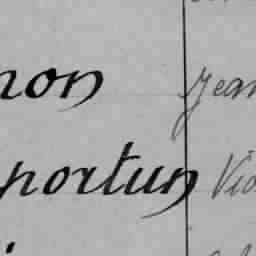 non Jean
portun Vic